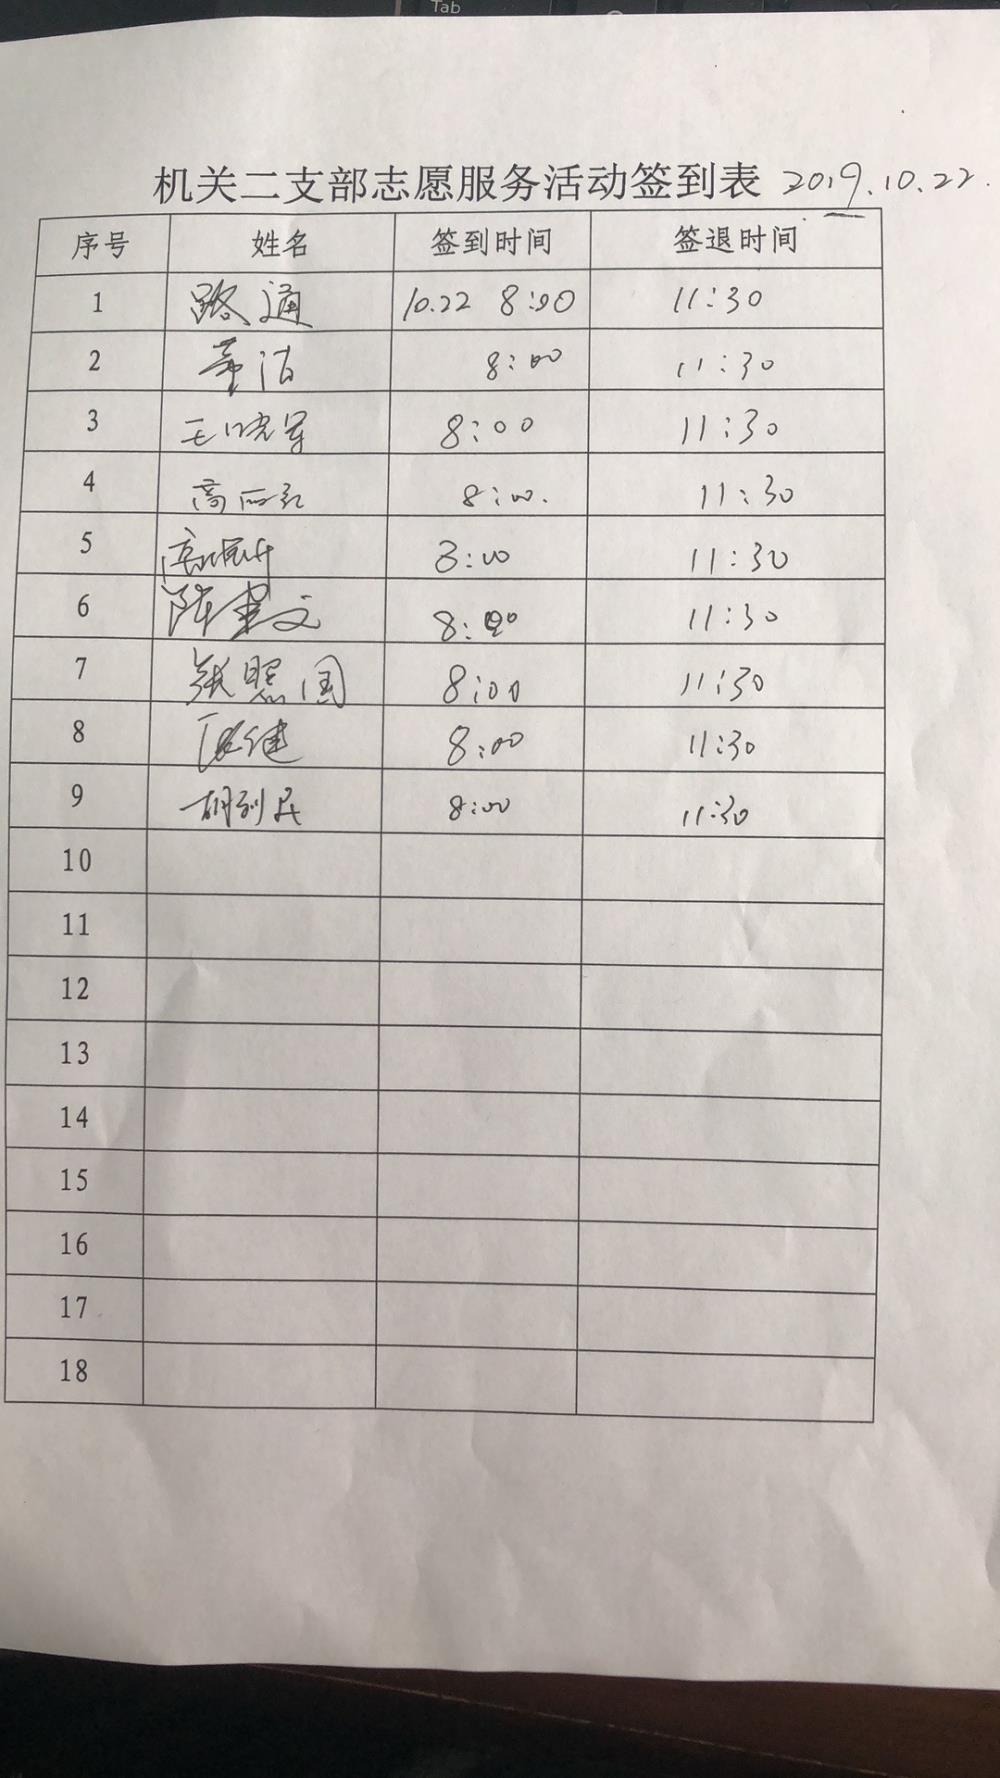 Tab
机关二支部志愿服务活动签到表 2019.10.22.
序号 姓名 签到时间 签退时间
1 路通 10.22 8:00 11:30
2 董洁 8:00 11:30
3 王晓军 8:00 11:30
4 高丽红 8:00. 11:30
5 8:00 11:30
6 陈建文 8:00 11:30
7 张照国 8:00 11:30
8 8:00 11:30
9 胡利民 8:00 11:30
10
11
12
13
14
15
16
17
18